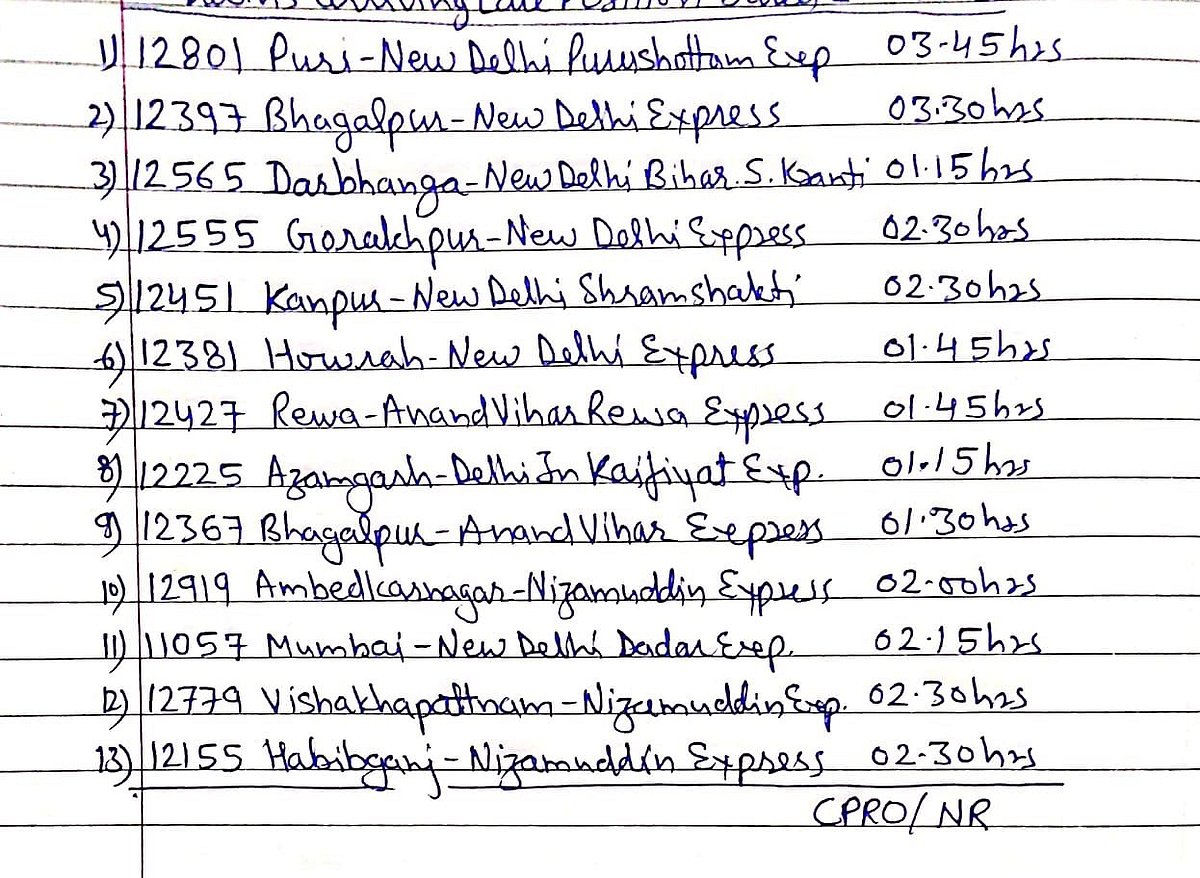 1) 12801 Puri-New Delhi Purushottam Exp 03-45hrs
2) 12397 Bhagalpur-New Delhi Express 03.30hrs
3) 12565 Darbhanga-New Delhi Bihar.S.Kranti 01.15hrs
4) 12555 Gorakhpur-New Delhi Express 02.30hrs
5) 12451 Kanpur-New Delhi Shramshakti 02.30hrs
6) 12381 Howrah-New Delhi Express 01.45hrs
7) 12427 Rewa-Anand Vihar Rewa Express 01.45hrs
8) 12225 Azamgarh-Delhi Jn Kaifiyat Exp. 01.15hrs
9) 12367 Bhagalpur-Anand Vihar Express 01.30hrs
10) 12919 Ambedkarnagar-Nizamuddin Express 02-00hrs
11) 11057 Mumbai-New Delhi Dadar Exp. 02.15hrs
12) 12779 Vishakhapattnam-Nizamuddin Exp. 02.30hrs
13) 12155 Habibganj-Nizamuddin Express 02.30hrs
CPRO/NR